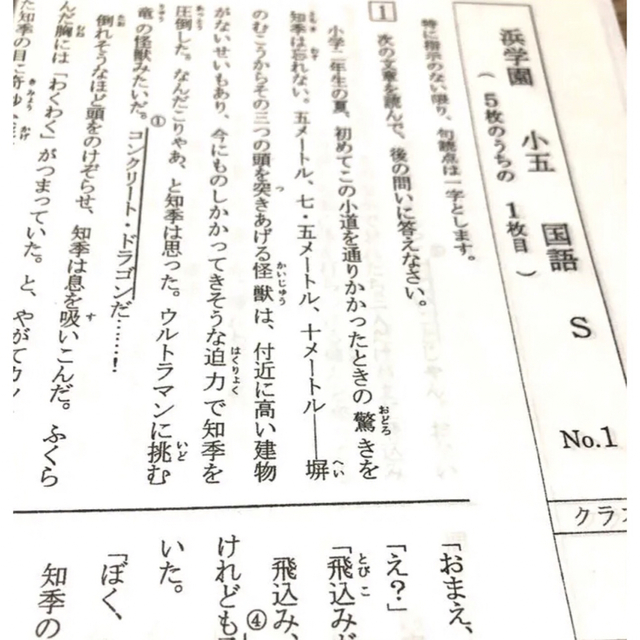 浜学園 小五 国語 S No.1
(5枚のうちの 1枚目)
クラ
特に指示のない限り、句読点は一字とします。
1 次の文章を読んで、後の問いに答えなさい。
小学二年生の夏、初めてこの小道を通りかかったときの驚きを
知季は忘れない。五メートル、七・五メートル、十メートル――塀
のむこうからその三つの頭を突きあげる怪獣は、付近に高い建物
がないせいもあり、今にものしかかってきそうな迫力で知季を
圧倒した。なんだこりゃあ、と知季は思った。ウルトラマンに挑む
竜の怪獣みたいだ。①コンクリート・ドラゴンだ……!
倒れそうなほど頭をのけぞらせ、知季は息を吸いこんだ。ふくら
んだ胸には「わくわく」がつまっていた。と、やがて
た知季の目に奇妙
「おまえ、
「え?」
「飛込み
飛込み、
けれども④
いた。
「ぼく、
知季の